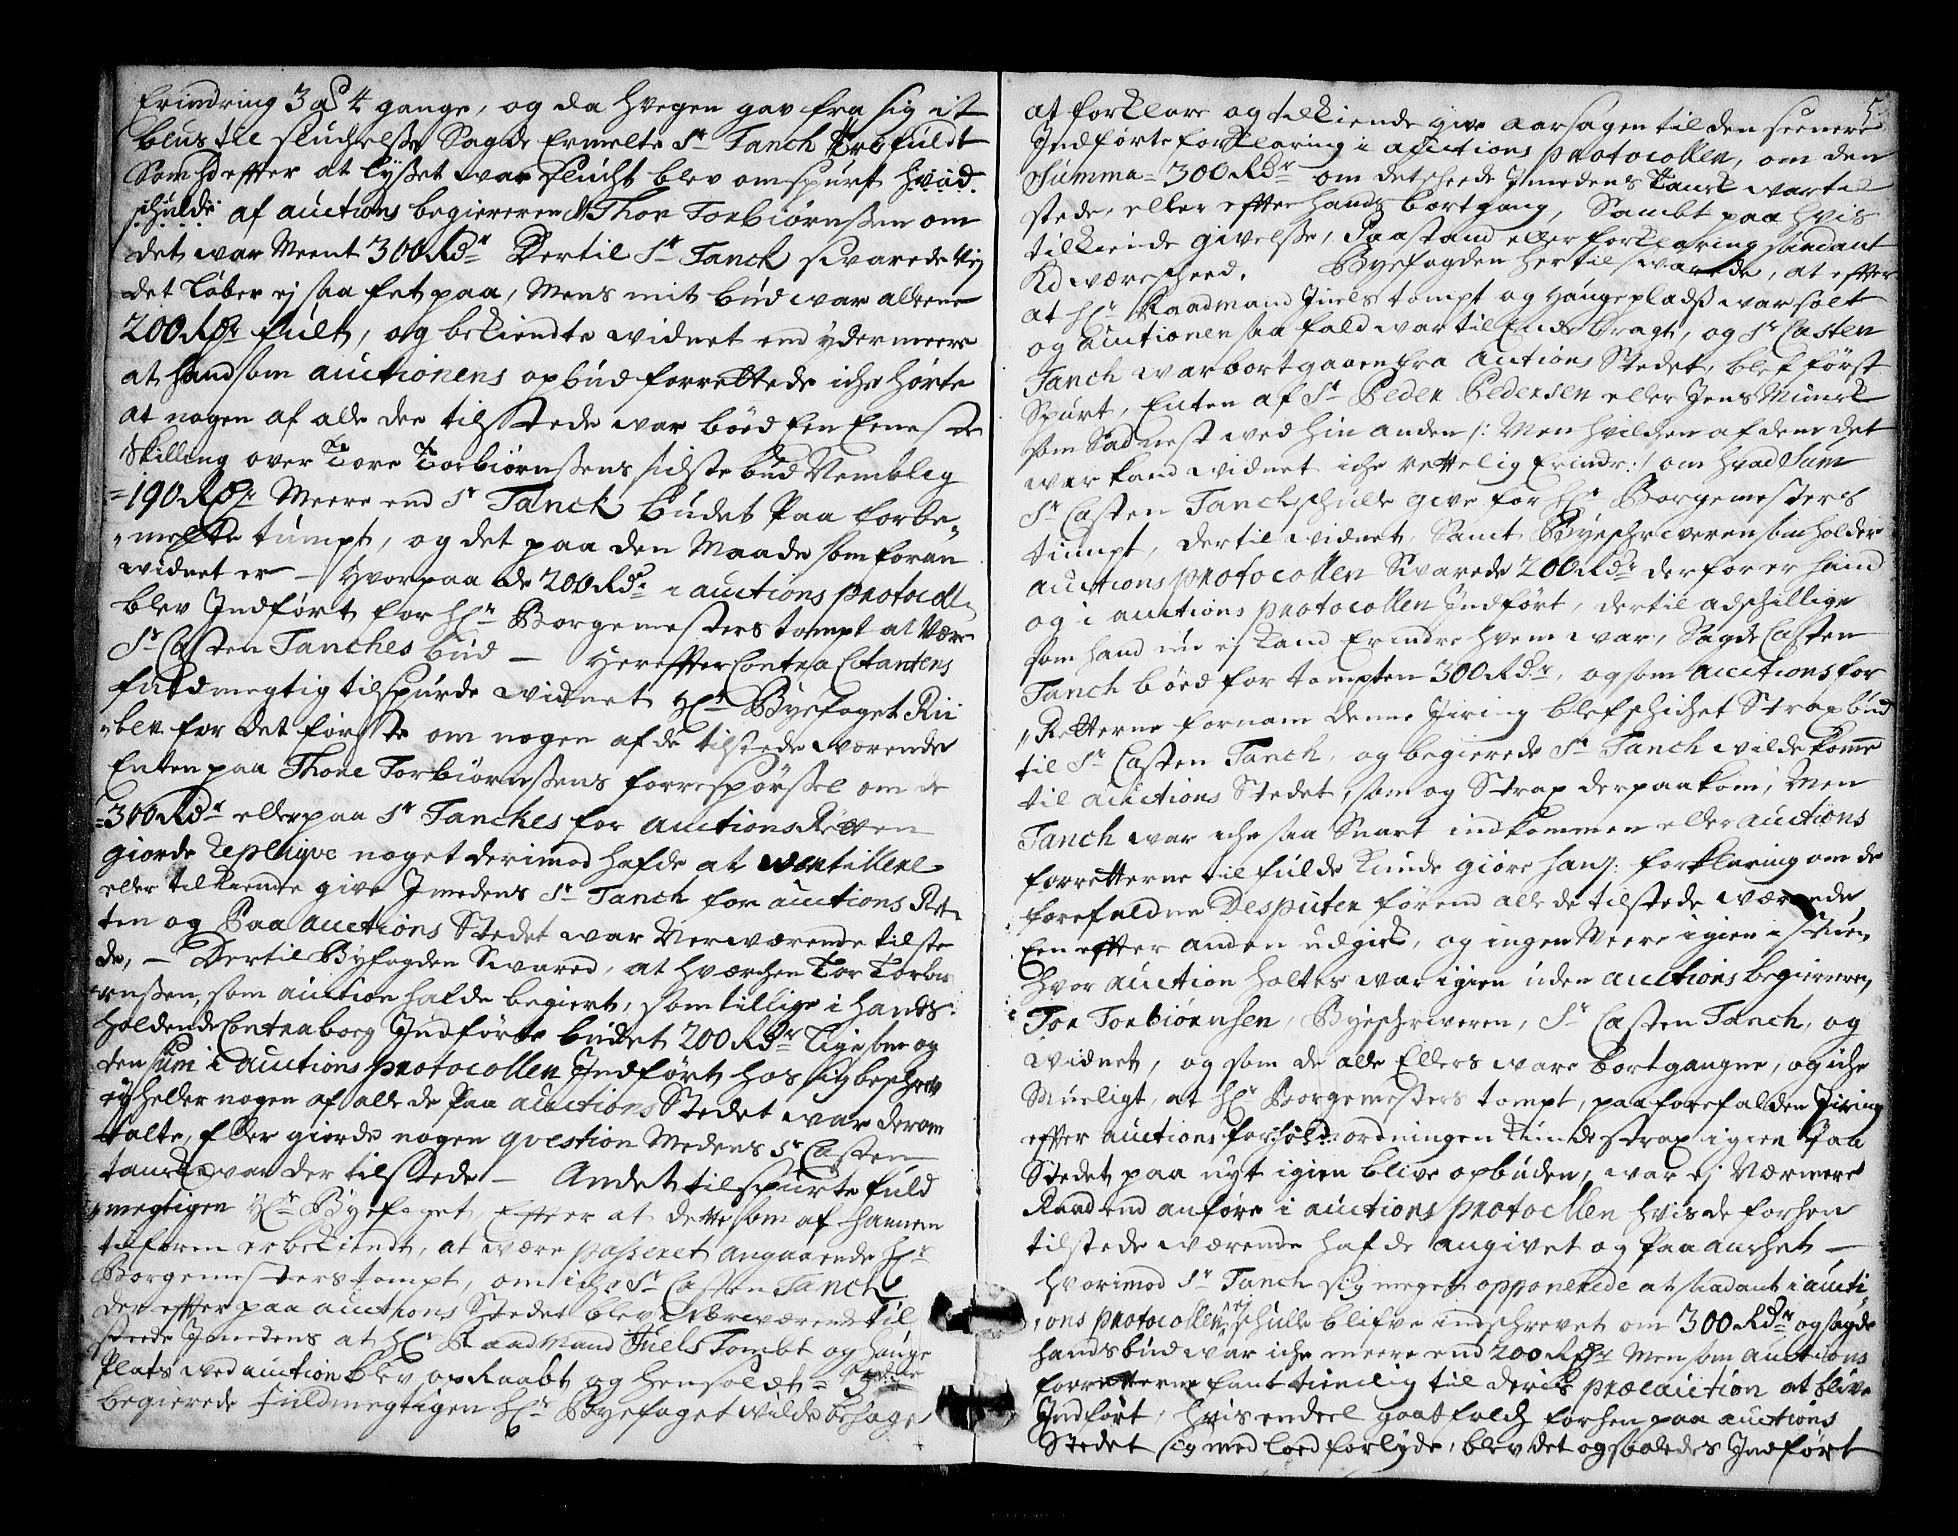 Erindring 3 a 4 gange, og da hvegen gav fra sig it
blus til sluchelsse Sagde Ermelte Sr Tanch Torb fuldt
Som hd effter at lysset war slucht blev omspurt hvad
schulde af auctions begiereren Thor Torbiørnssen om
det war Meent 300 Rdr Dertil Sr Tanck swarede Nej
det løber ej saa fet paa, Mens mit bud war allene
200 Rdr fult, og bekiendte widnet end ydermeere
at hand som auctionens opbud forrettede iche hørte
at nogen af alle der tilstede war bøed een Eeneste
Skilling over Tore Torbiørnssens sidste bud Nemblig
=190 Rdr Meere end Sr Tanck budet Paa forbe„
„melte tumpt, og det paa den Maade som foran
widnet er — Hvorpaa de 200 Rdr i auctions protocoll
blev Indført for Hr Borgemesters tompt at være
Sr Casten Tanches bud — Hereffter Contra Citantens
fuldmegtig tilspurde widnet Hr Byefoget Rii
„ber for det første om nogen af de tilstede wærende
Enten paa Thore Torbiørnssens forrespørssel om de
=300 Rdr eller paa Sr Tanches for auctions Retten
giorde Replique noget derimod hafde at wentillere
eller tilkiende give Imedens Sr Tanch for auctions Ret„
ten og Paa auctions Stedet war Nerwærende tilste
de, — Dertil Byfogden Swared, at hwerchen Tor Torbiø
rnssen, som auction hafde begiert, som tillige i hands
holdende Contraborg Indførte budet 200 Rdr Ligesom og
den sum i auctions protocollen Indført hos sig beschrev
ey heller nogen af alle de Paa auctions Stedet war derom
talte, Eller giorde nogen qvestion Medens Sr Casten
tanck war der tilstede — Andet tilspurte fuld
„megtigen Hr Byefoget, Effter at dette som af hannem
tilforn er bekiendt, at være passeret angaaende Hr
Borgemesters tompt, om iche Sr Casten Tanck
der effter paa auctions Stedet blev Nærwærende til
steede Imedens at Hr Raadmand Juels Tombt og hauge
Plats wed auction blev opRaabt og hensoldt =
begierede fuldmegtigen Hr Byefoget wilde behage
5.
at forklare og tilkiende give aarsagen til den seenere
Indførte forklaring i auctions protocollen, om den
Summa = 300 Rdr om det scheede Imedens Tanck war til
stede, eller effter hands bortgang, Sambt paa hvis
tilkiende givelsse, Paastand eller forklaring saadant
Kd wære scheed. Byefogden hertil swarede, at effter
at Hr Raadmand Juels tompt og haugeplads war solt
og auctionen saa fald war til Ende bragt, og Sr Casten
Tanch war bortgaaen fra auctions Stedet, blef først
Spurt, Enten af Sr Peder Pedersen eller Jens Munck
som Sad nest wed hin anden /: Men hvilchen af dem det
war kand widnet iche rettelig Erindr :/ om hvad Sum
Sr Casten Tanch schulle give for Hr Borgemesters
tumpt, dertil widnet, Samt Byeschriveren som holder
auctions protocollen Swarede 200 Rdr derfor er hand
og i auctions protocollen Indført, dertil adschillige
som hand nu ej kand Erindre hvem war, Sagde Casten
Tanch bøed for tompten 300 Rdr, og som auctions for
„Retterne fornam denne Jring blef schichet Strax bud
til Sr Casten Tanch, og begierede Sr Tanch wilde komme
til auctions Stedet, som og Strax derpaa kom, Men
Tanch war iche saa Snart indkommen eller auctions
forretterne til fulde kunde giøre hans forklaring om de
forefaldne Desputer førend alle de tilstede wærende
Een effter anden udgich, og ingen Meere igien i stuen
hvor auction holtes war igien uden auctions begiereren,
Tor Torbiørnsen, Byeschriveren, Sr Casten Tanch, og
widnet, og som de alle Ellers ware bortgangne, og iche
Mueligt, at Hr Borgemesters tompt, paa forefalden Jiring
effter auctions forholds ordningen kunde strax igien Paa
Stedet paa nyt igien blive opbuden, war ej Nærmere
Raad end anføre i auctions protocollen hvis de forhen
tilstede wærende hafde angivet og Paaanchet —
hvorimod Sr Tanch sig meget opponerede at saadant i aucti„
„ons protocollen ej schulle blifve indschrevet om 300 Rdr og sagde
hands bud war iche meere end 200 Rdr Men som auctions
forretterne fant tienlig til deris præcaution at blive
Indført, hvis endeel gaat folch forhen paa auctions
Stedet sig med loed forlyde, blev det og saaledes Indført